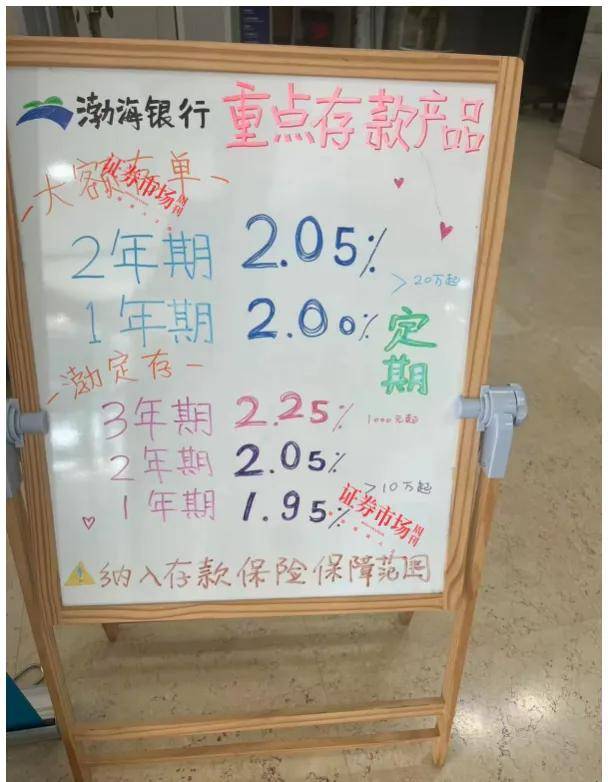 渤海银行 重点存款产品
-大额存单-
证券市场周刊
2年期 2.05%
>20万起
1年期 2.00%
定期
-渤定存-
3年期 2.25% 1000元起
2年期 2.05%
>10万起
1年期 1.95%
证券市场周刊
纳入存款保险保障范围